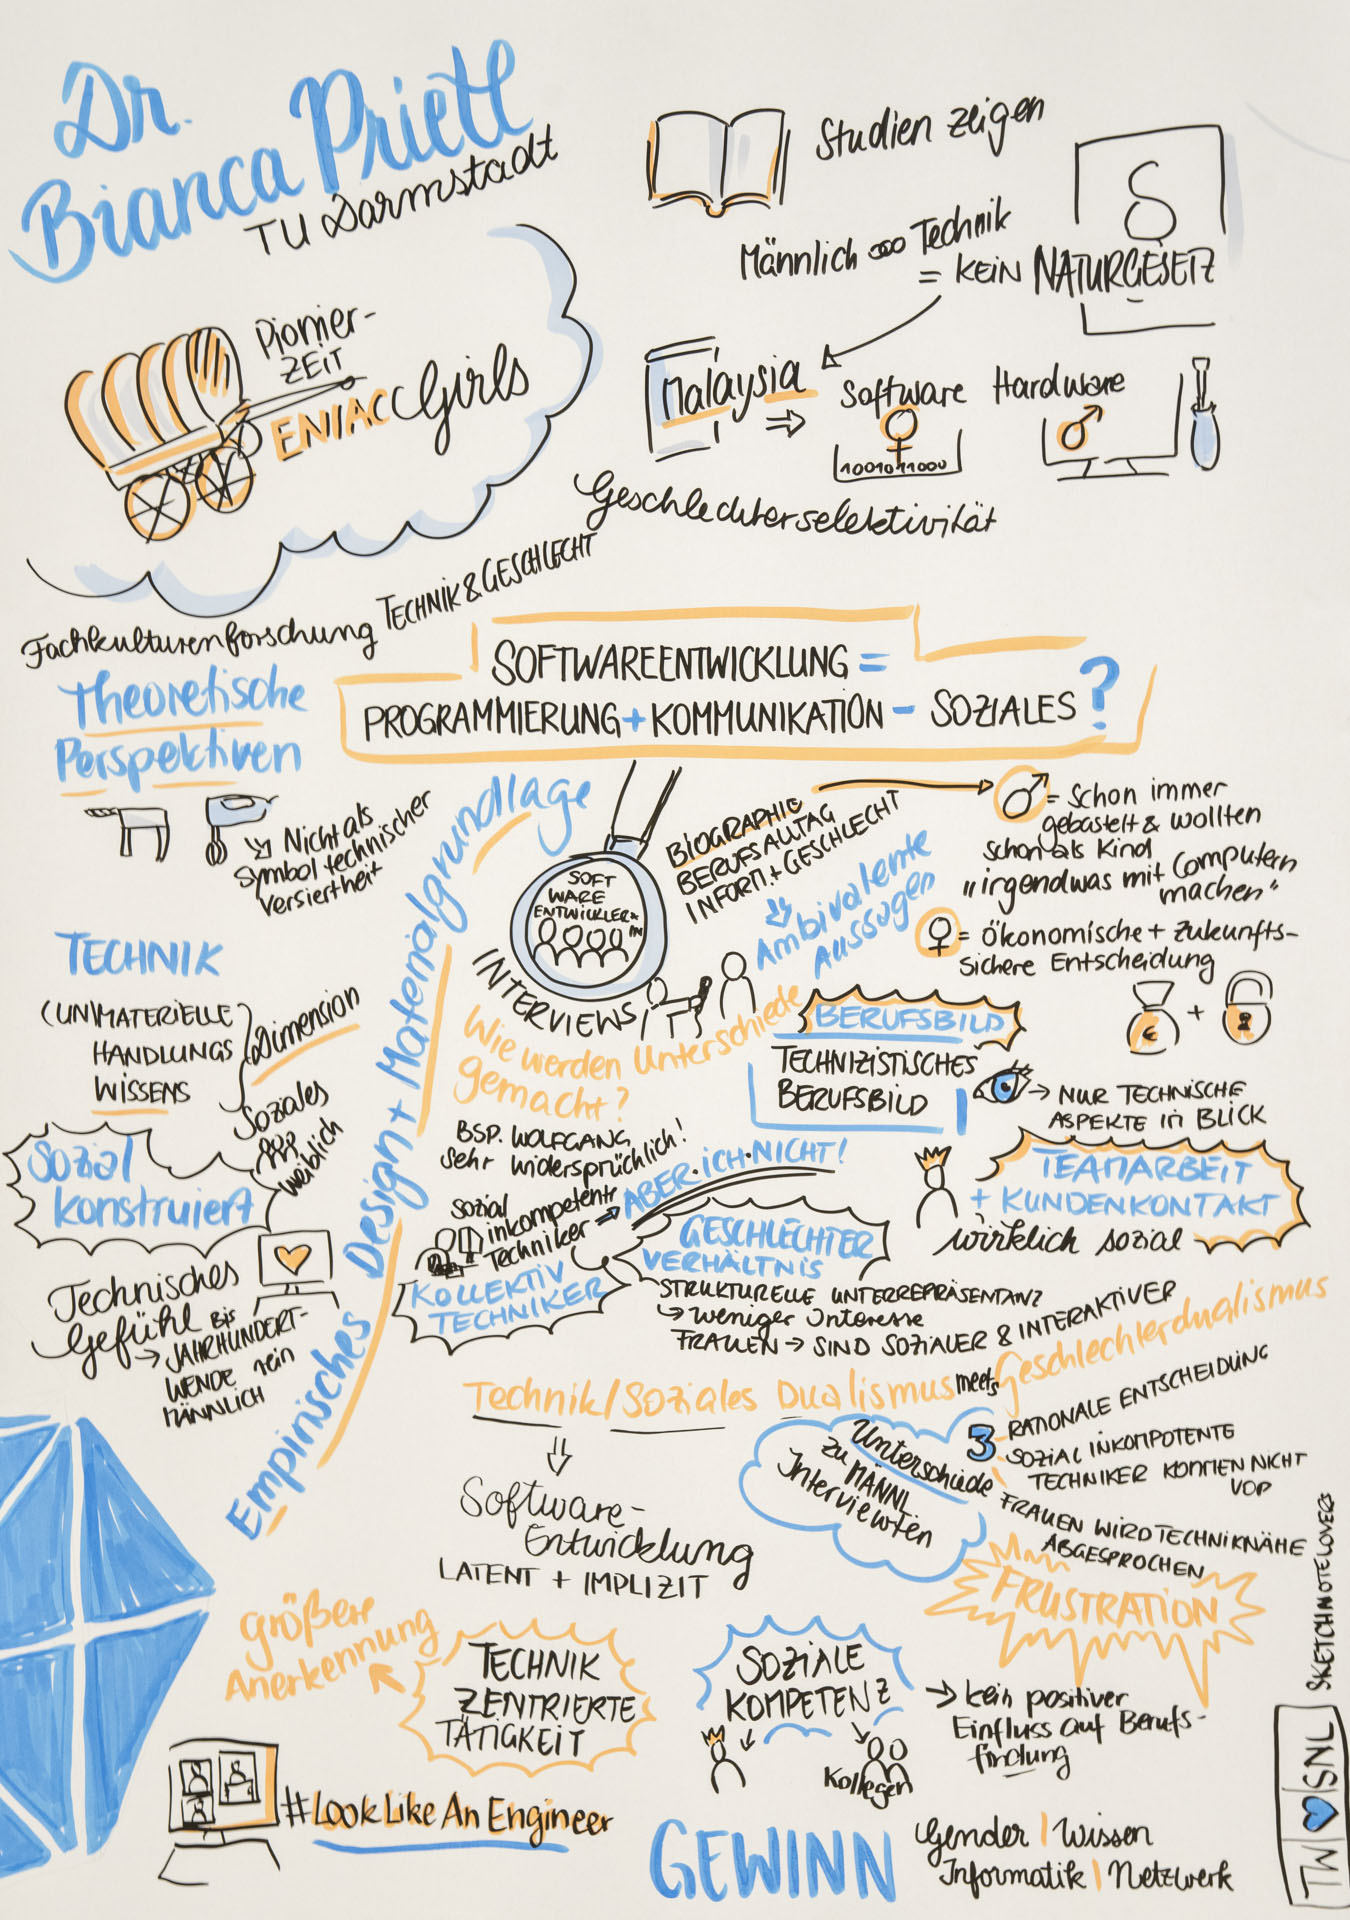 Dr.
Bianca Prietl
TU Darmstadt
Pionier-
ZEIT
ENIAC Girls
Studien zeigen
§
Männlich Technik
= KEIN NATURGESETZ
Malaysia
⇒
Software
♀
1001011000
Hardware
♂
Geschlechterselektivität
Fachkulturenforschung TECHNIK & GESCHLECHT
SOFTWAREENTWICKLUNG =
PROGRAMMIERUNG + KOMMUNIKATION - SOZIALES?
Theoretische
Perspektiven
Nicht als
Symbol technischer
Versiertheit
TECHNIK
(UN)MATERIELLE
HANDLUNGS
WISSENS
Dimension
Soziales
weiblich
Sozial
konstruiert
Technisches
Gefühl BIS
→ JAHRHUNDERT-
WENDE rein
MÄNNLICH
Empirisches Design + Materialgrundlage
SOFT
WARE
ENTWICKLER*
IN
INTERVIEWS
BIOGRAPHIE
BERUFSALLTAG
INFORM. + GESCHLECHT
Ambivalente
Aussagen
♂ = Schon immer
gebastelt & wollten
schon als Kind
"irgendwas mit Computern
machen"
♀ = Ökonomische + Zukunfts-
Sichere Entscheidung
€ +
Wie werden Unterschiede
gemacht?
BSP. WOLFGANG
Sehr widersprüchlich!
Sozial
inkompetente
Techniker ⇒ ABER ICH NICHT!
KOLLEKTIV
TECHNIKER
BERUFSBILD
TECHNIZISTISCHES
BERUFSBILD
→ NUR TECHNISCHE
ASPEKTE IN BLICK
TEAMARBEIT
+ KUNDENKONTAKT
wirklich sozial
GESCHLECHTER
VERHÄLTNIS
STRUKTURELLE UNTERREPRÄSENTANZ
↳ Weniger Interesse
FRAUEN → SIND SOZIALER & INTERAKTIVER
Technik/Soziales Dualismus meets Geschlechterdualismus
Software-
Entwicklung
LATENT + IMPLIZIT
Unterschiede
zu MÄNNL.
Interviewten
3
RATIONALE ENTSCHEIDUNG
SOZIAL INKOMPOTENTE
TECHNIKER KOMMEN NICHT
VOR
FRAUEN WIRD TECHNIKNÄHE
ABGESPROCHEN
FRUSTRATION
größere
Anerkennung
TECHNIK
ZENTRIERTE
TÄTIGKEIT
SOZIALE
KOMPETENZ
Kollegen
→ kein positiver
Einfluss auf Berufs-
findung
#LookLikeAnEngineer
GEWINN
Gender | Wissen
Informatik | Netzwerk
SKETCHNOTELOVERS
TW SNL